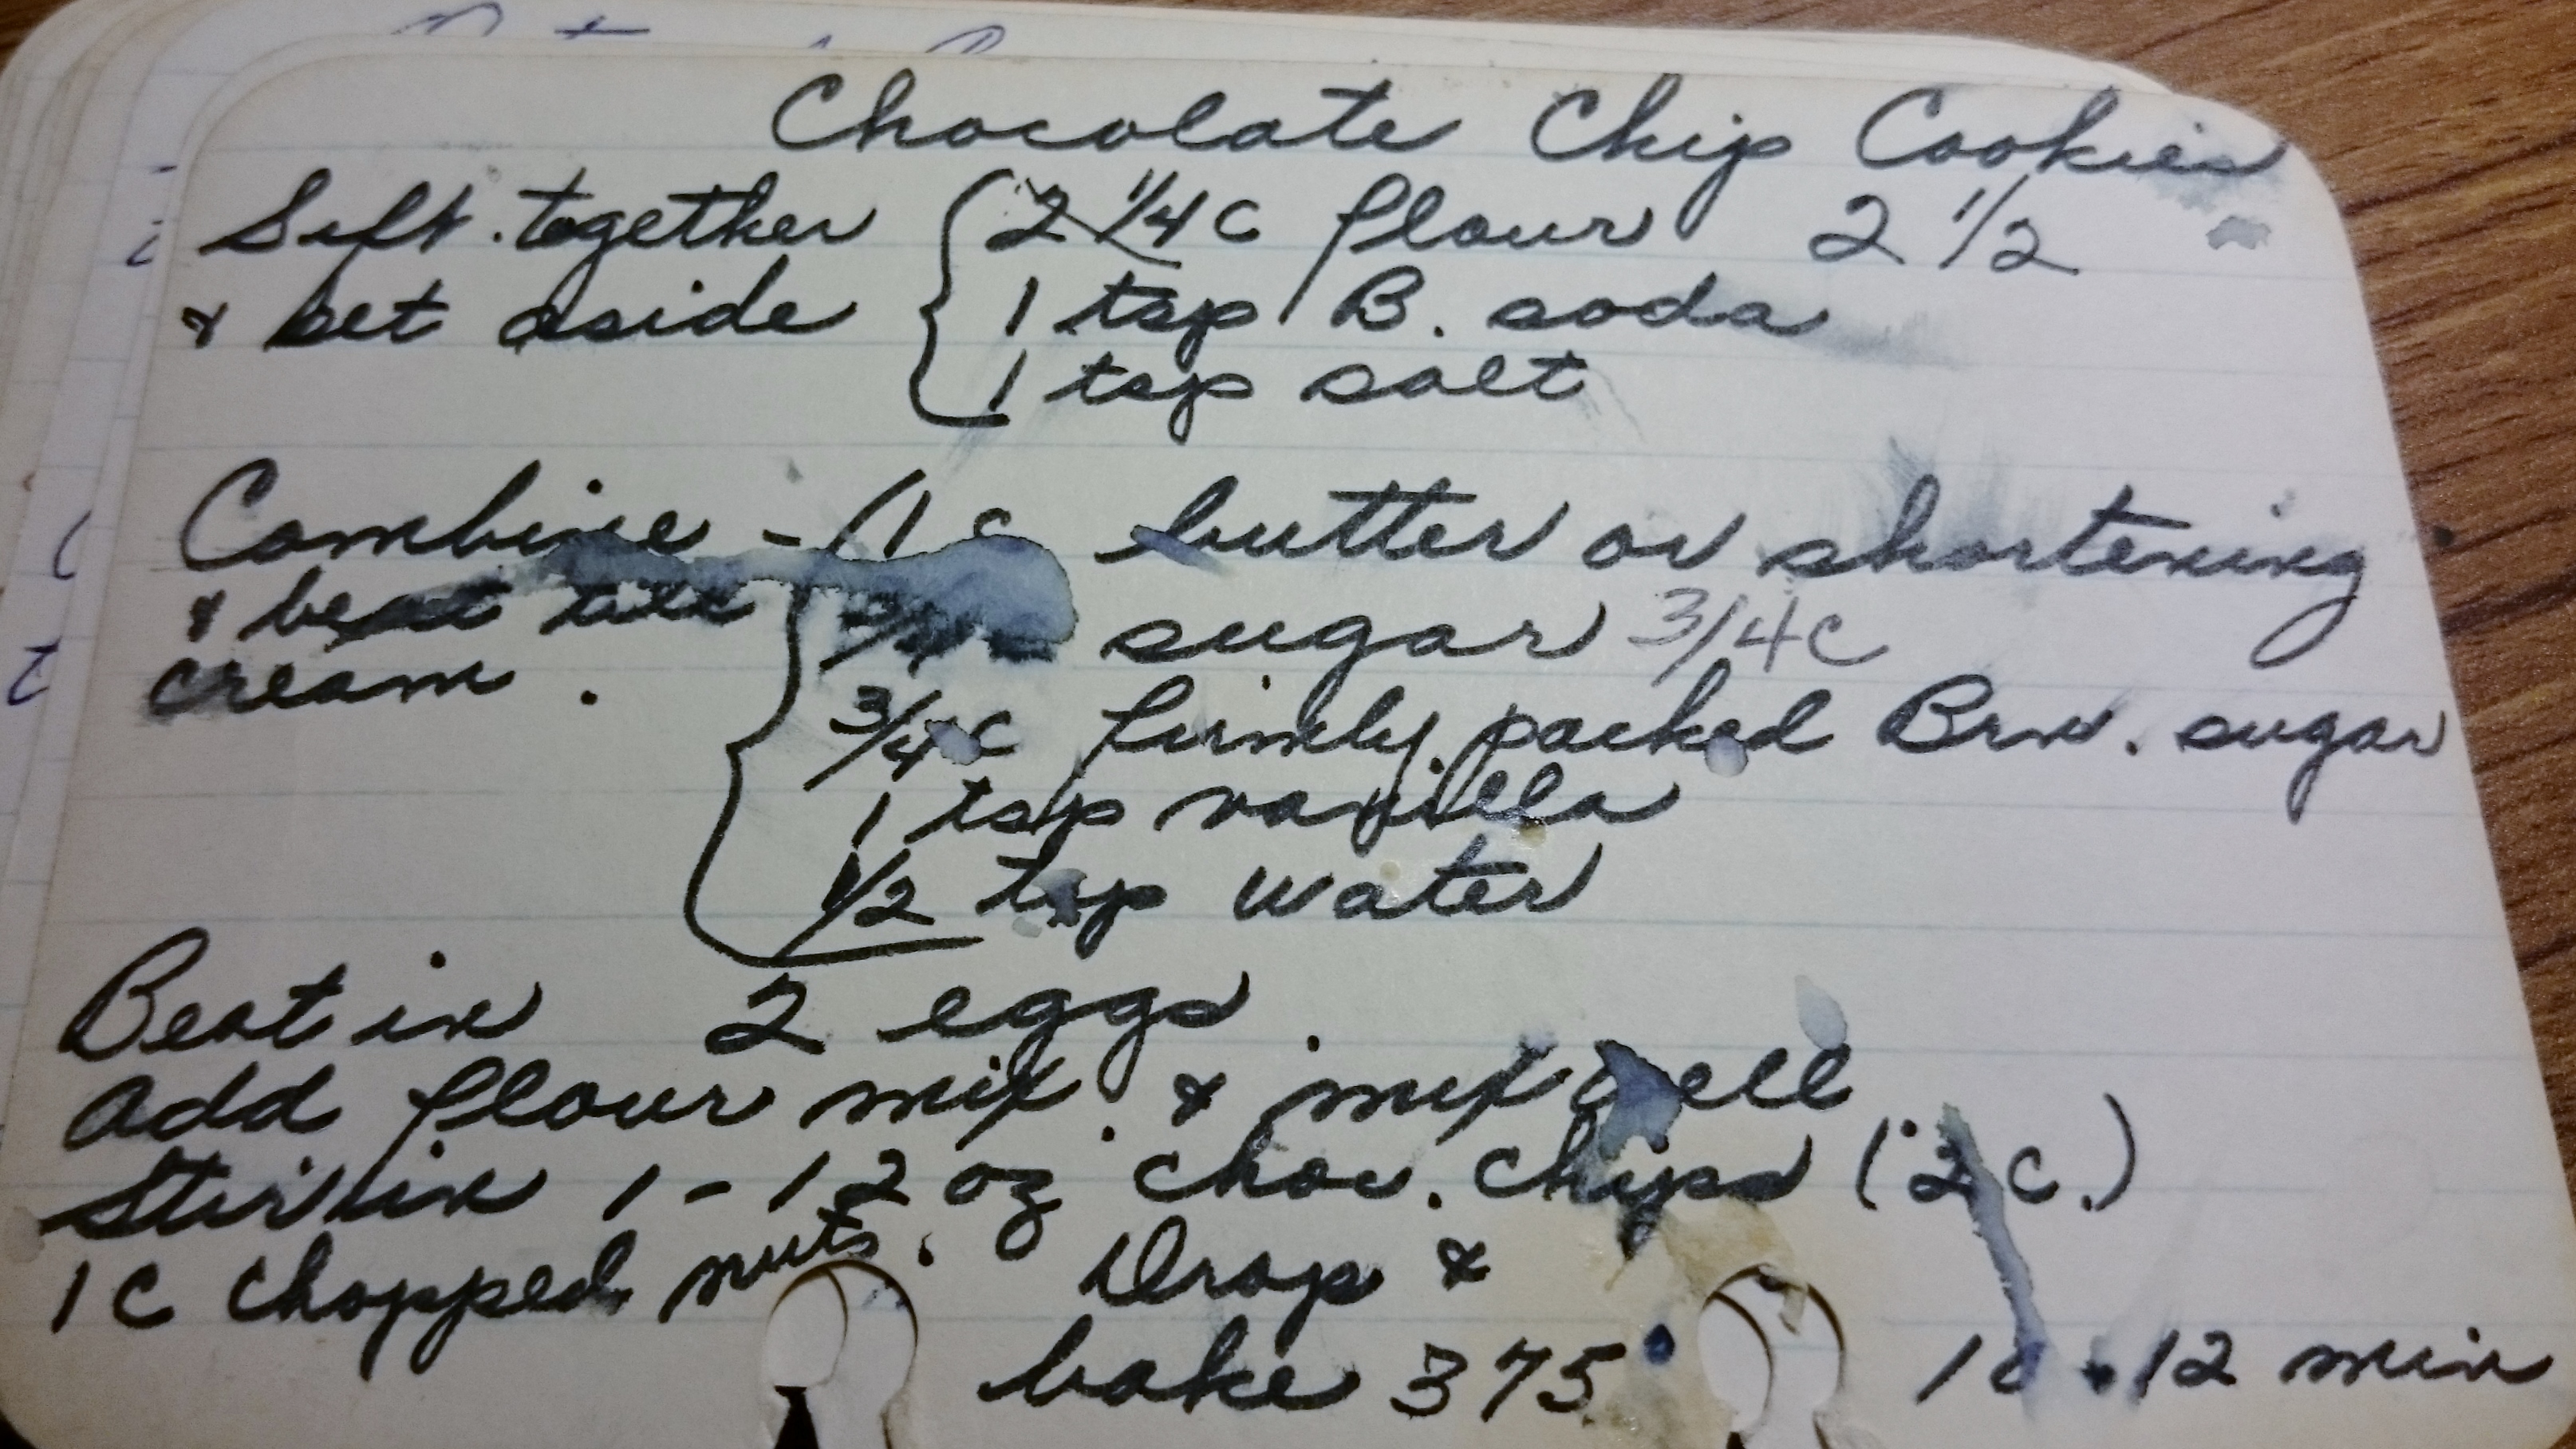 Chocolate Chip Cookies
Sift together 2 1/4 c flour 2 1/2
& set aside 1 tsp B. soda
1 tsp salt
Combine - 1 c butter or shortening
& beat till 3/4 sugar 3/4 c
cream. 3/4 c firmly packed Brn. sugar
1 tsp vanilla
1/2 tsp water
Beat in 2 eggs
Add flour mix. & mix well
Stir in 1 - 12 oz choc. chips (2 c.)
1 c chopped nuts. Drop &
bake 375° 10-12 min